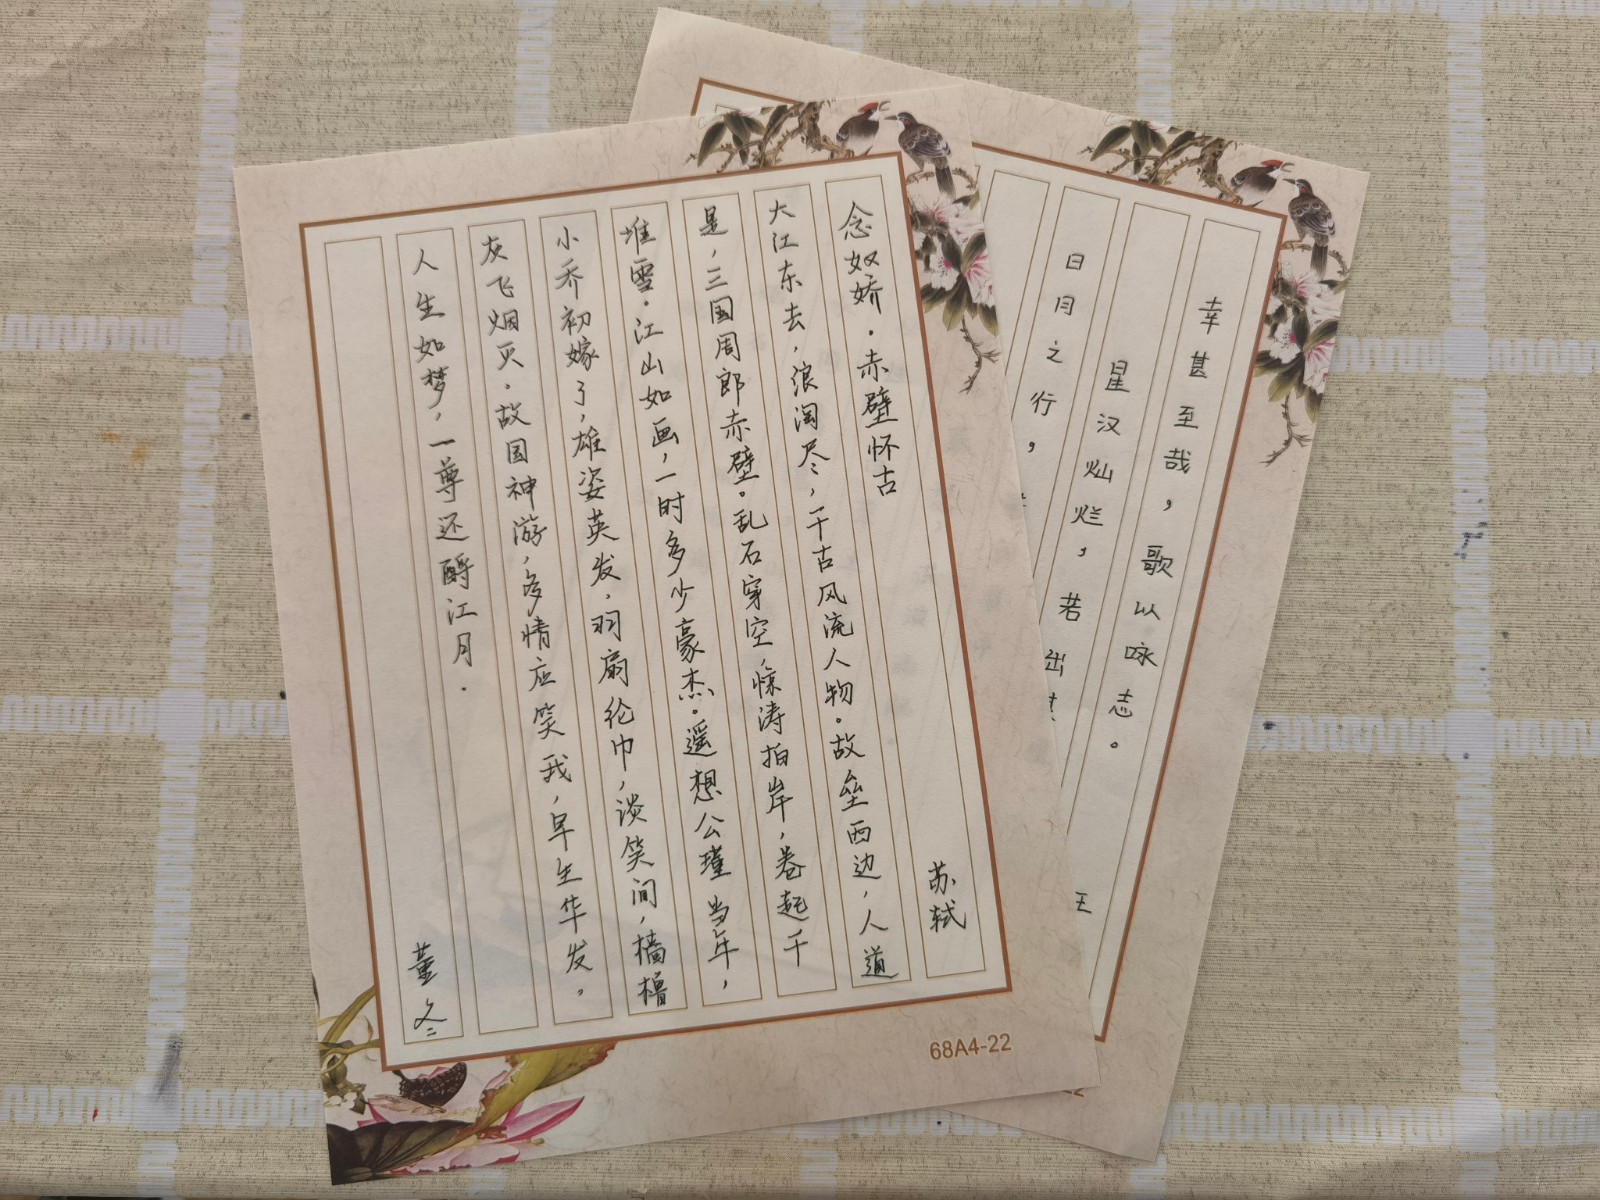 念奴娇·赤壁怀古 苏轼
大江东去，浪淘尽，千古风流人物。故垒西边，人道
是，三国周郎赤壁。乱石穿空，惊涛拍岸，卷起千
堆雪。江山如画，一时多少豪杰。遥想公瑾当年，
小乔初嫁了，雄姿英发，羽扇纶巾，谈笑间，樯橹
灰飞烟灭。故国神游，多情应笑我，早生华发，
人生如梦，一尊还酹江月. 董冬
68A4-22
幸甚至哉，歌以咏志。
星汉灿烂，若出其
日月之行，